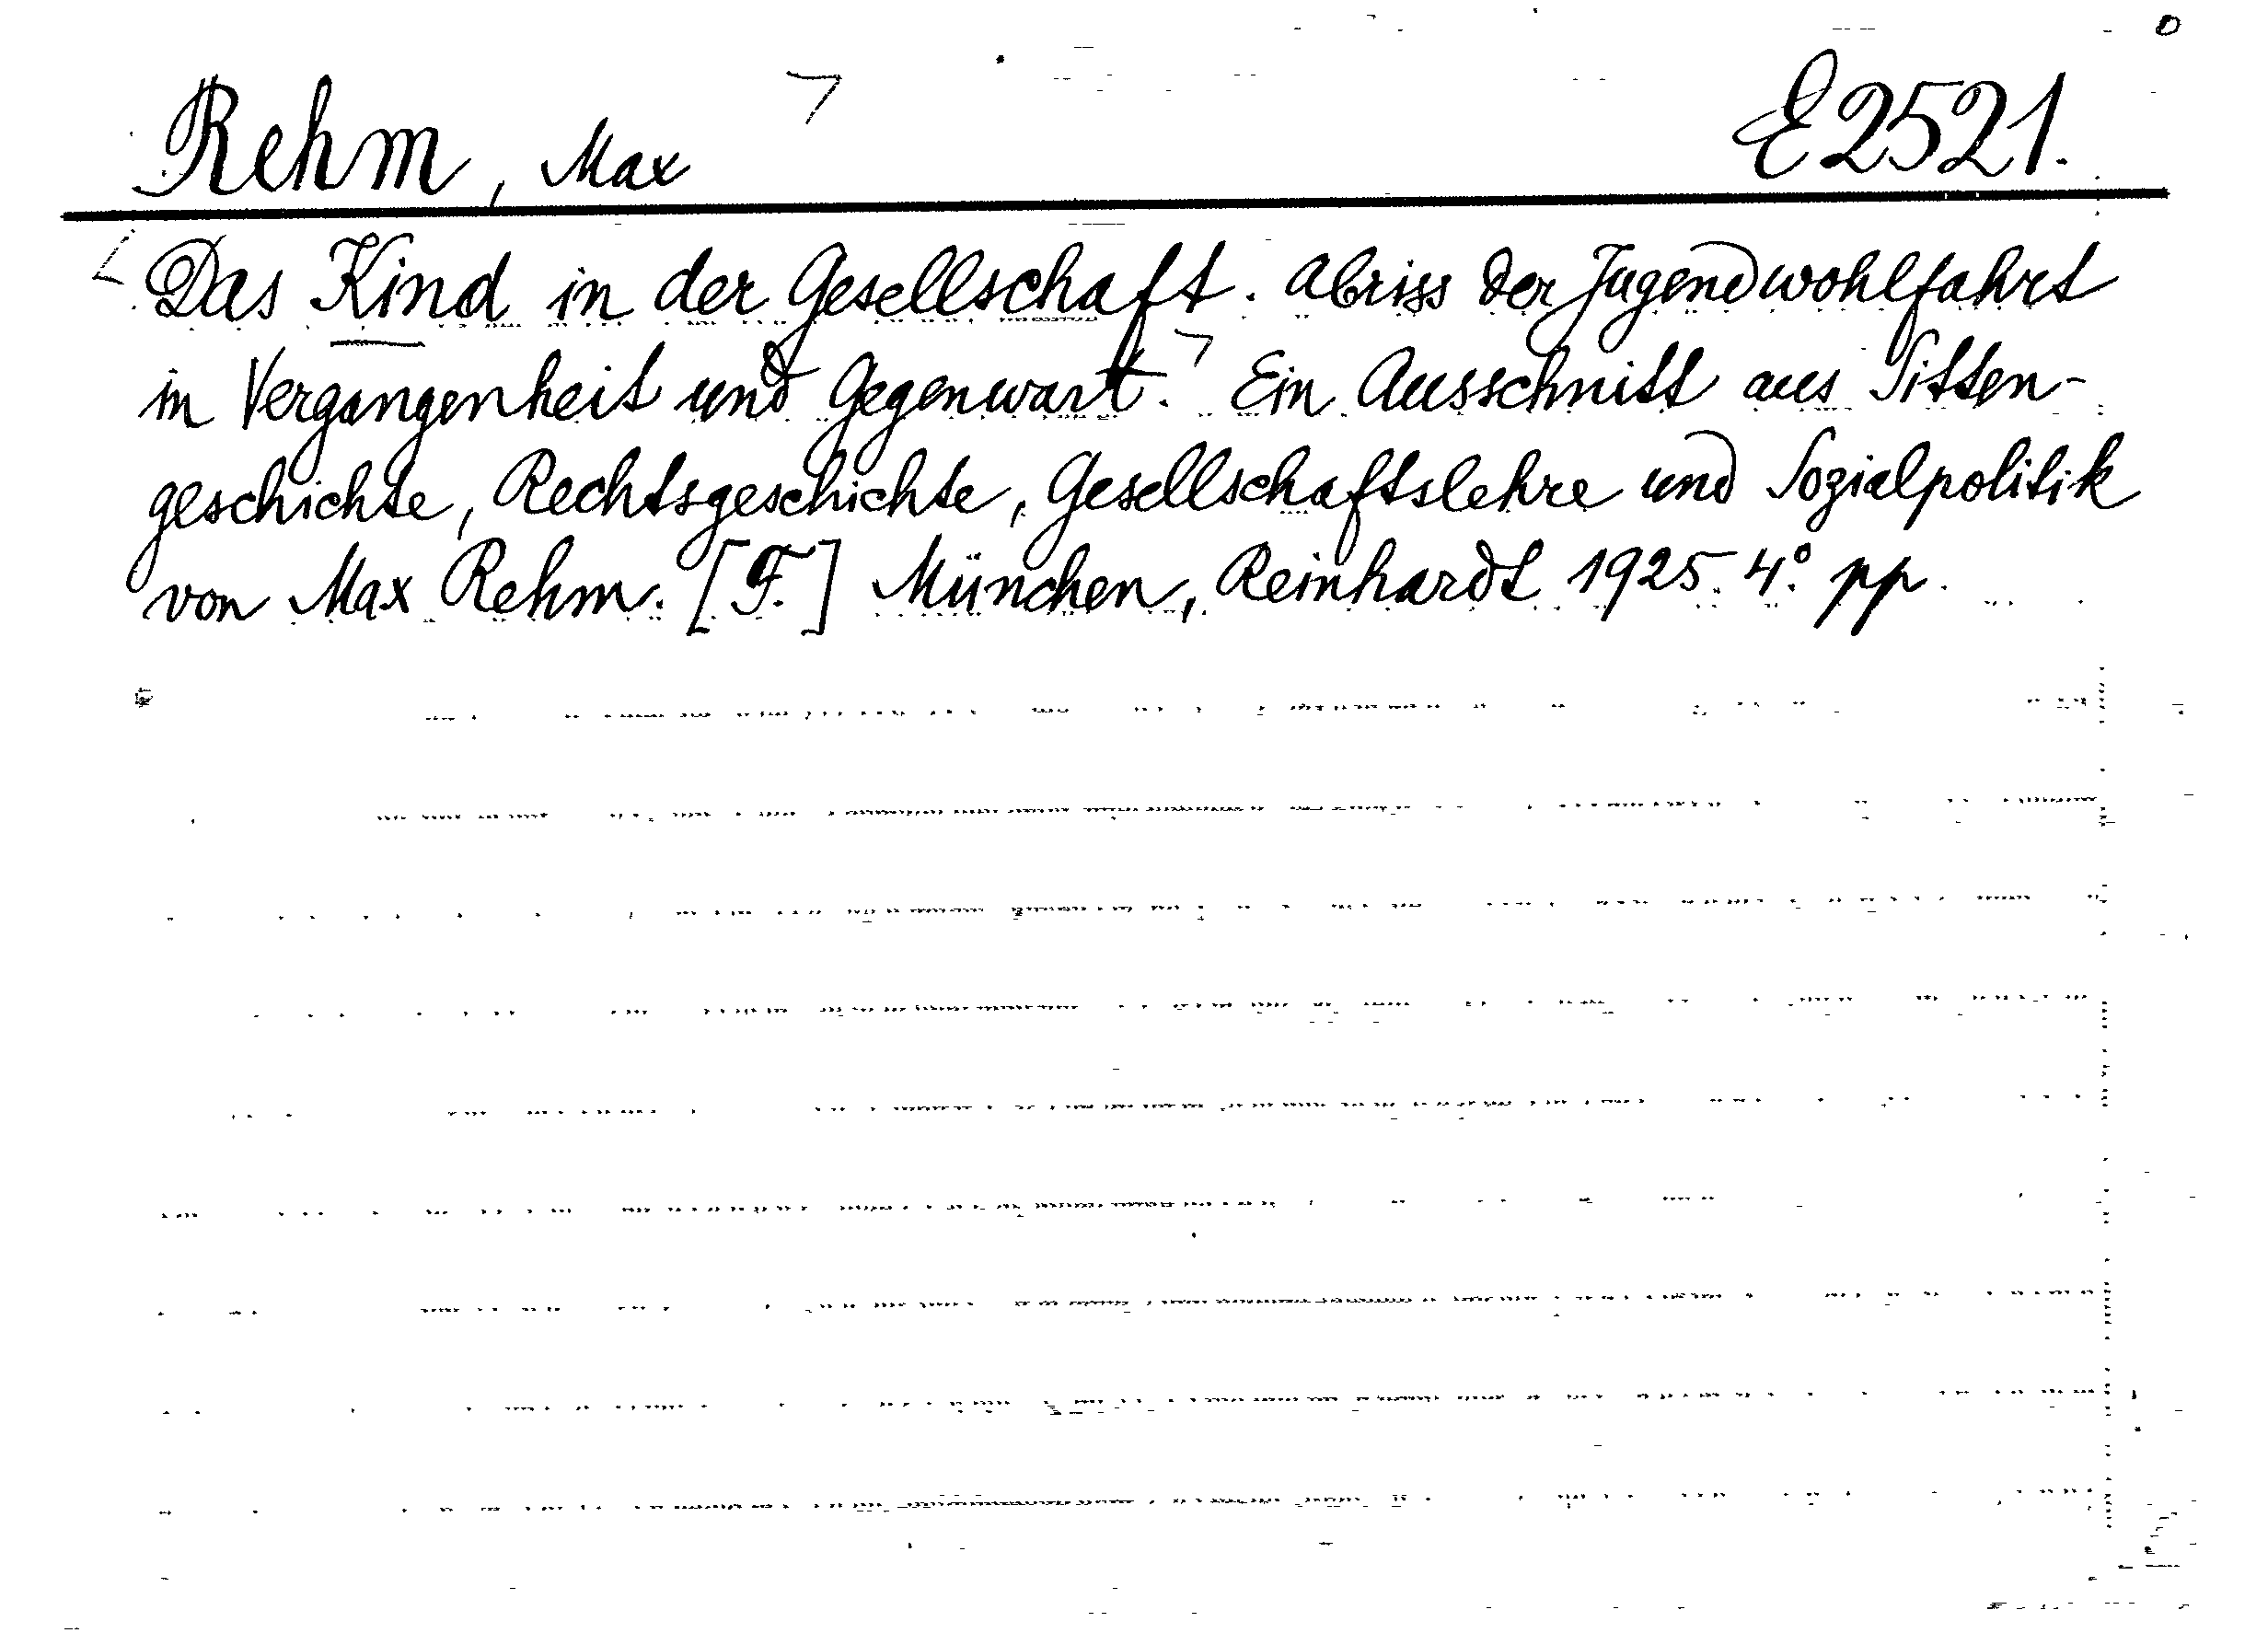 Rehm, Max E 2521.
Das Kind in der Gesellschaft. Abriss der Jugendwohlfahrt
in Vergangenheit und Gegenwart. Ein Ausschnitt aus Sitten-
geschichte, Rechtsgeschichte, Gesellschaftslehre und Sozialpolitik
von Max Rehm. [F.] München, Reinhardt 1925. 4° pp.